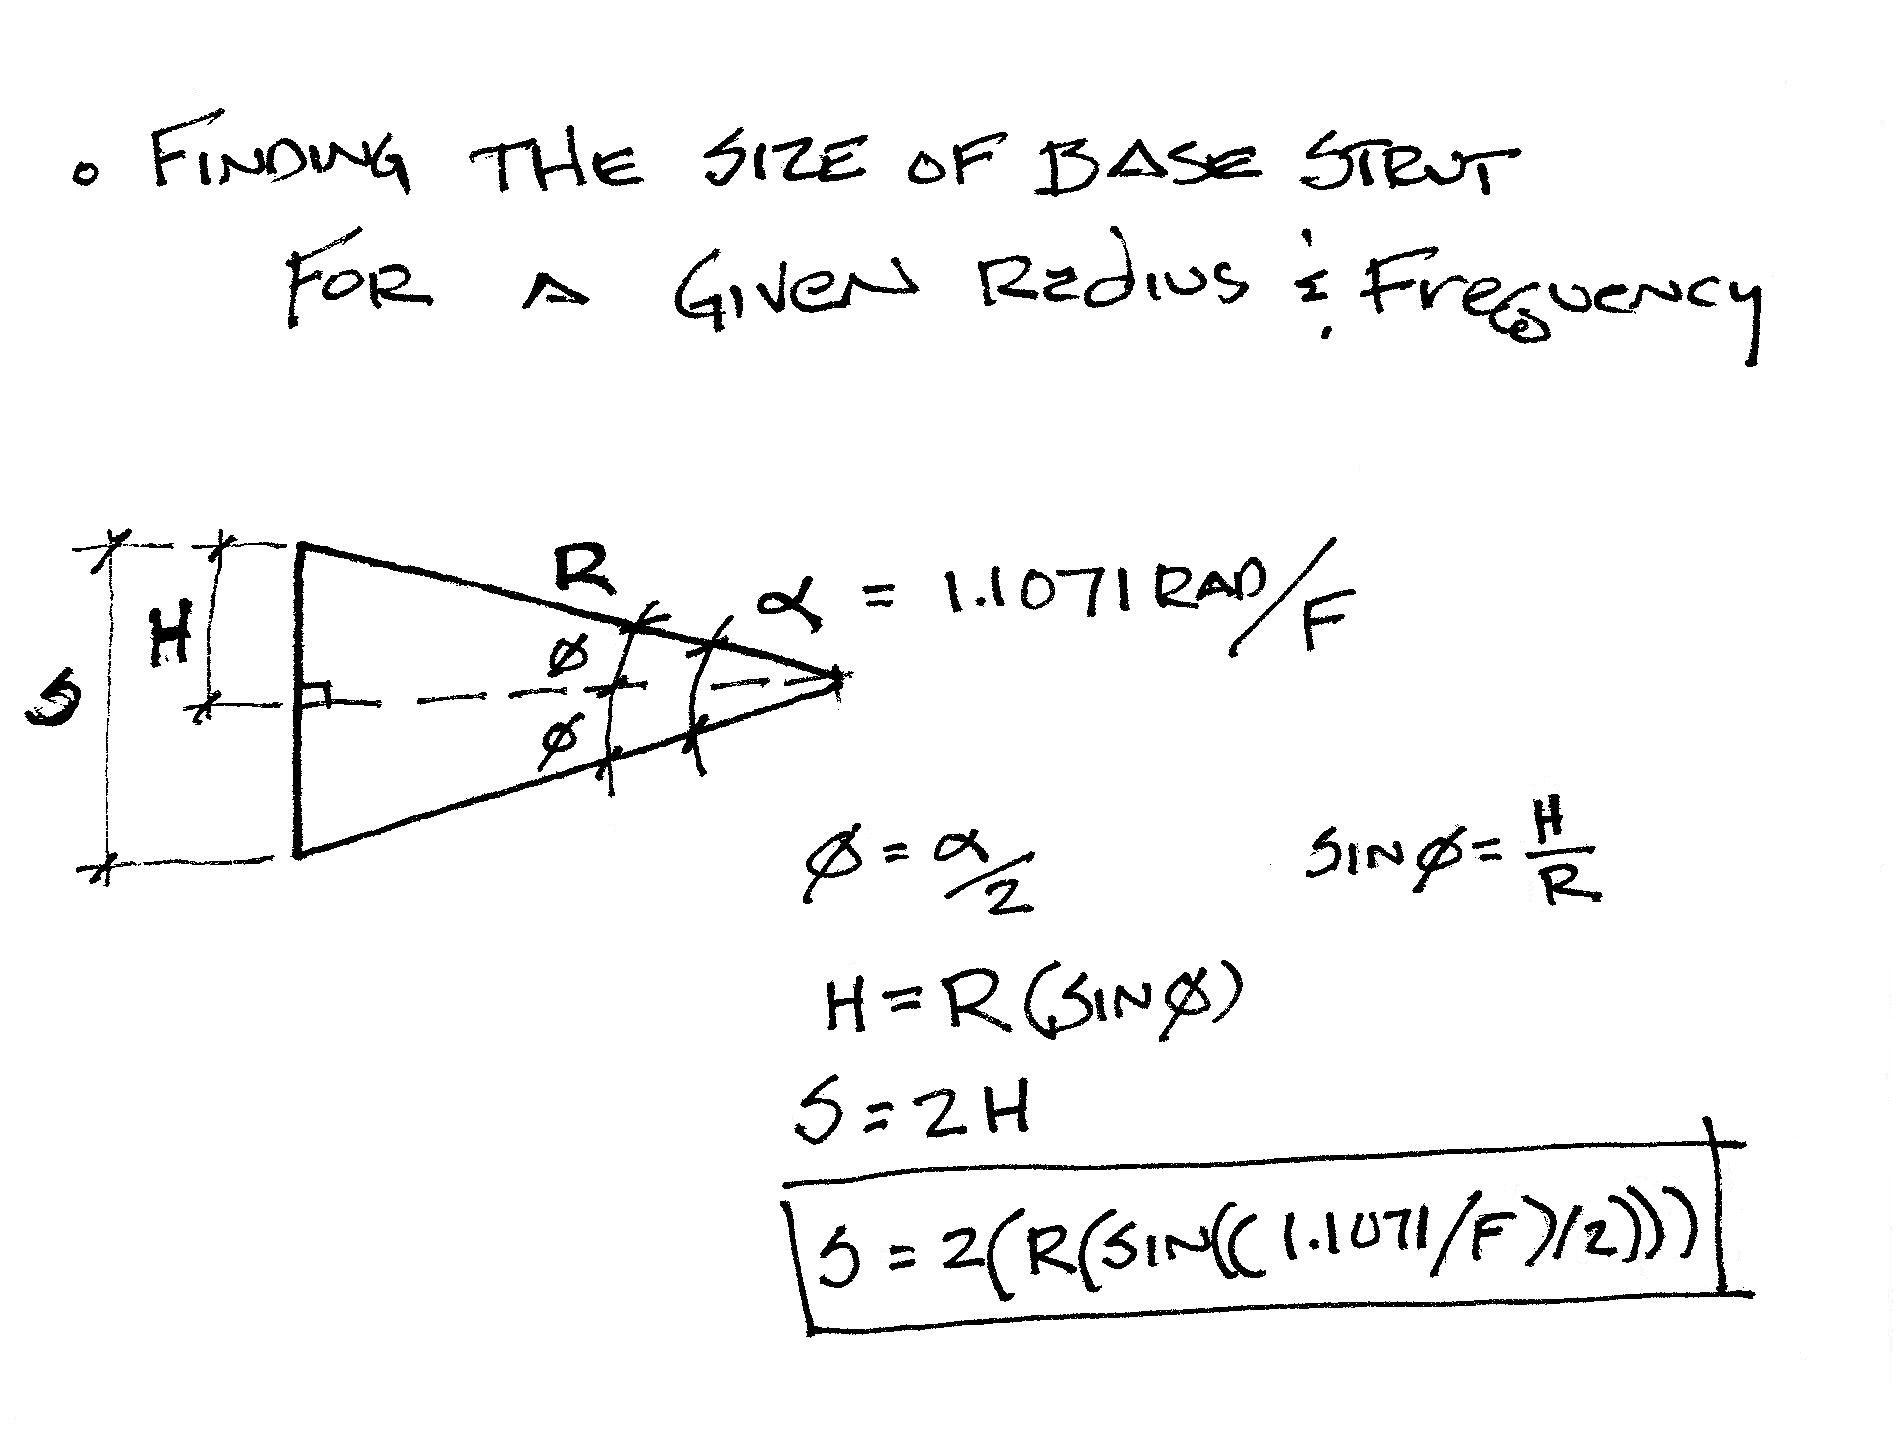 • FINDING THE SIZE OF BASE STRUT
FOR A GIVEN RADIUS & FREQUENCY
R
α = 1.1071 RAD/F
H
S
Ø
Ø
Ø = α/2
SIN Ø = H/R
H = R (SIN Ø)
S = 2H
S = 2(R(SIN((1.1071/F)/2)))